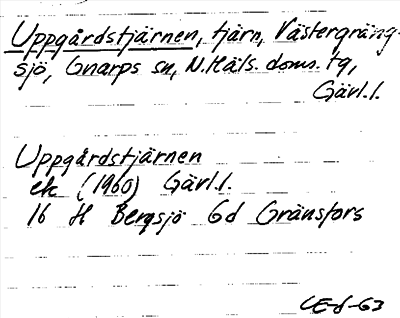 Uppgårdstjärnen, tjärn, Västergräng-
sjö, Gnarps sn, N. Häls. doms. tg,
Gävl. l.
Uppgårdstjärnen
ek (1960) Gävl. l.
16 H Bergsjö 6d Gränsfors